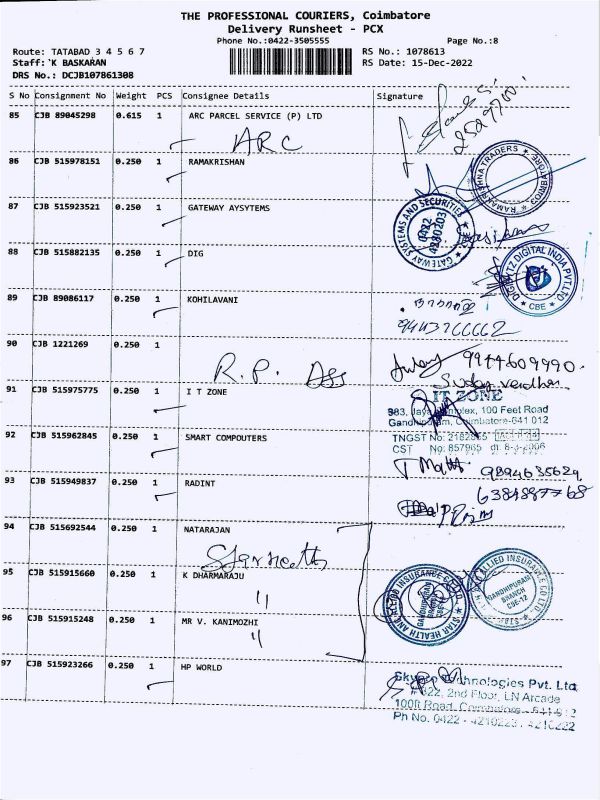 THE PROFESSIONAL COURIERS, Coimbatore
Delivery Runsheet - PCX
Phone No.:0422-3505555
Page No.:8
Route: TATABAD 3 4 5 6 7
RS No.: 1078613
Staff:`K BASKARAN
RS Date: 15-Dec-2022
DRS No.: DCJB107861308
S No Consignment No Weight PCS Consignee Details Signature
85 CJB 89045298 0.615 1 ARC PARCEL SERVICE (P) LTD
ARC
86 CJB 515978151 0.250 1 RAMAKRISHAN
RAMAKRISHNA TRADERS
87 CJB 515923521 0.250 1 GATEWAY AYSYTEMS
GATEWAY SYSTEMS AND SECURITIES
0422
4280203
88 CJB 515882135 0.250 1 DIG
DIGIBYTZ DIGITAL INDIA PVT.LTD
CBE
89 CJB 89086117 0.250 1 KOHILAVANI
9443766662
90 CJB 1221269 0.250 1
R.P. Ass
9944609990.
91 CJB 515975775 0.250 1 I T ZONE
IT ZONE
983, Jaya Complex, 100 Feet Road
Gandhipuram, Coimbatore-641 012
TNGST No:
CST No: 857965 dt: 8-3-2006
92 CJB 515962845 0.250 1 SMART COMPOUTERS
9894635629
93 CJB 515949837 0.250 1 RADINT
6384887768
94 CJB 515692544 0.250 1 NATARAJAN
Star heath
95 CJB 515915660 0.250 1 K DHARMARAJU
"
STAR HEALTH AND ALLIED INSURANCE CO LTD
GANDHIPURAM
BRANCH
CBE-12
96 CJB 515915248 0.250 1 MR V. KANIMOZHI
"
97 CJB 515923266 0.250 1 HP WORLD
Technologies Pvt. Ltd
322, 2nd Floor, LN Arcade
100ft Road, Coimbatore - 641 012
Ph No. 0422 - 4210223, 4210222